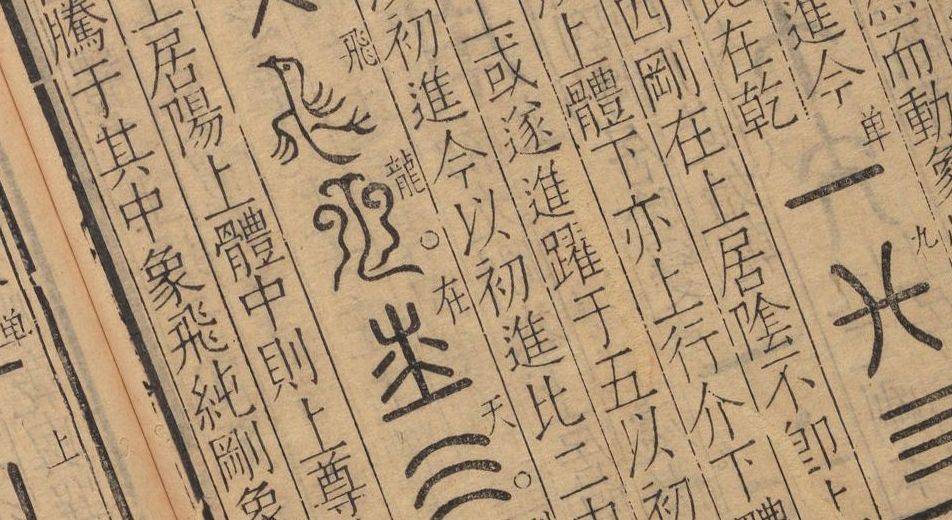 而動象
進今
此在乾
单 一 九
四剛在上居陰不卽上
上體下亦上行介下體
上或遂進躍于五以初
初進今以初進比二
飛龍。在天。
上居陽上體中則上尊
騰于其中象飛純剛象
单
上